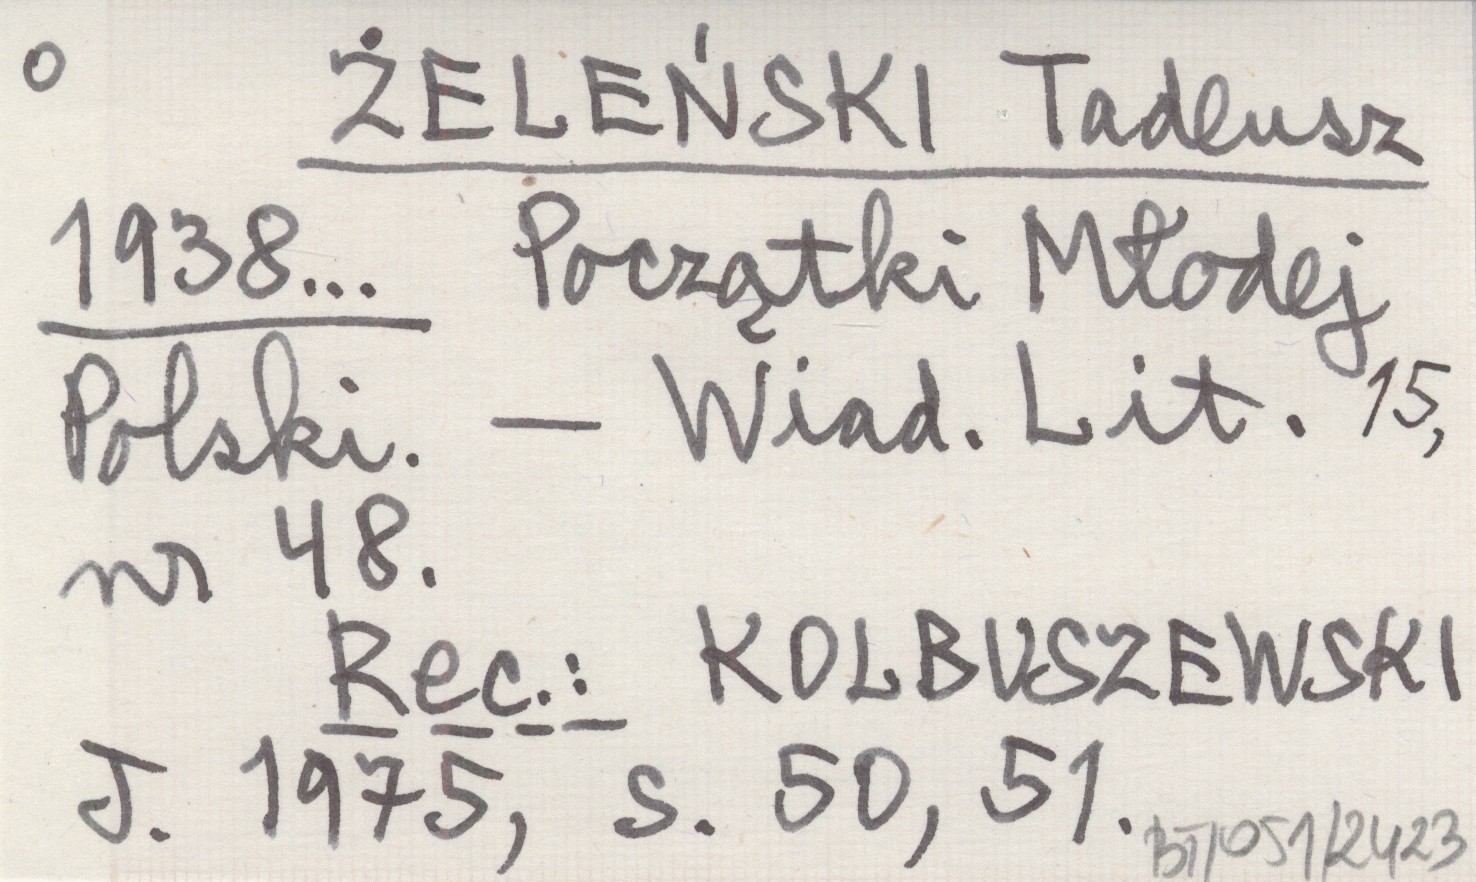 o ŻELEŃSKI Tadeusz
1938... Początki Młodej
Polski. — Wiad. Lit. 15,
nr 48.
Rec.: KOLBUSZEWSKI
J. 1975, s. 50, 51.
BT/051/2423